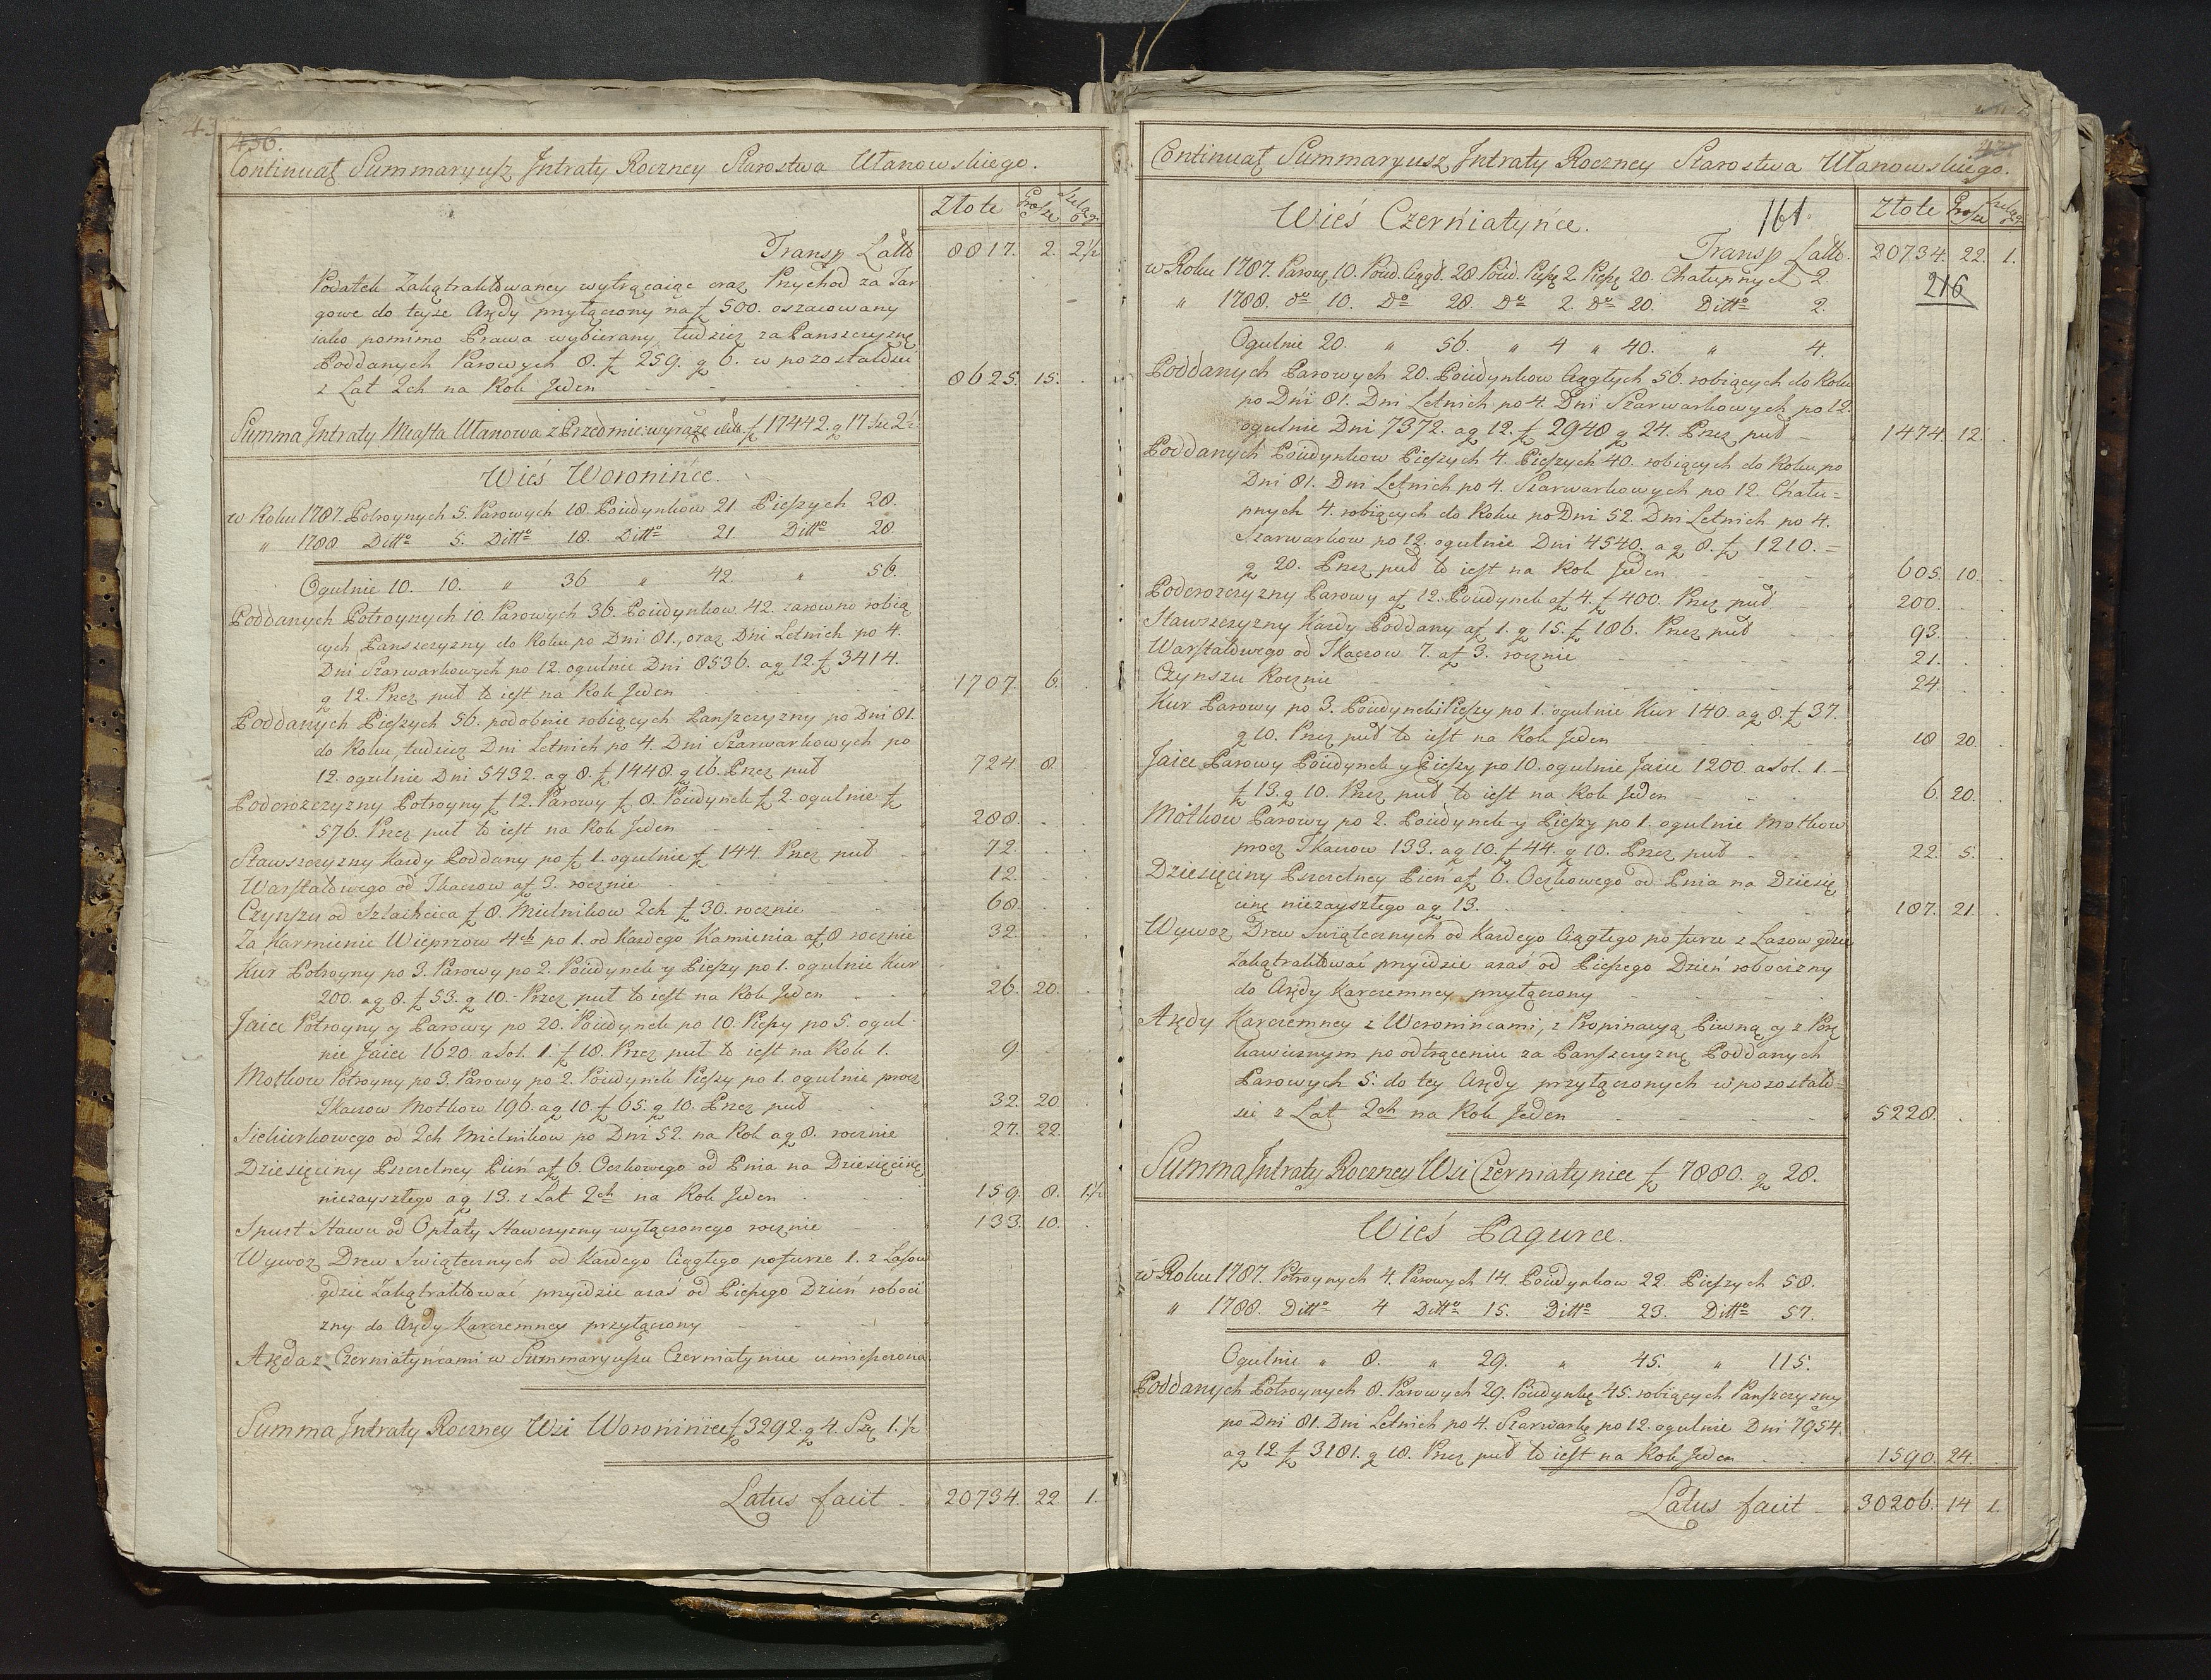 436.
Continuat Summaryusz Jntraty Roczney Starostwa Ułanowskiego.
Złote Grosze Szelągi
Transp Latto 8817. 2. 2 1/2
Podatek Zakątraktowaney wytrącaiąc oraz Przychod za Tar
gowe do teyże Arędy przyłączony na f 500. oszacowany
iako pomimo Prawa wybierany, tudziez za Panszczyznę
Poddanych Parowych 8. f 259. g 6. w pozostałości
z Lat 2ch na Rok Jeden 8625. 15.
Summa Jntraty Miasta Ułanowa z Przedmie: wyraże f 17442. g 17 Sze 2 1/2
Wieś Woronińce.
w Roku 1787. Potroynych 5. Parowych 18. Poiedynkow 21 Pieszych 28.
" 1788. Ditto 5. Ditto 18. Ditto 21. Ditto 28.
Ogulnie 10. 10. " 36 " 42 " 56.
Poddanych Potroynych 10. Parowych 36. Poiedynkow 42. zarowno robią
cych Panszczyzny do Roku po Dni 81., oraz Dni Letnich po 4.
Dni Szarwarkowych po 12. ogulnie Dni 8536. a g 12. f 3414.
g 12. Przez puł to iest na Rok Jeden 1707. 6.
Poddanych Pieszych 56. podobnie robiących Panszczyzny po Dni 81.
do Roku, tudziez Dni Letnich po 4. Dni Szarwarkowych po
12. ogulnie Dni 5432. a g 8. f 1448. g 16. Przez puł 724. 8.
Podorozczyzny Potroyny f 12. Parowy f 8. Poiedynek f 2. ogulnie f
576. Przez puł to iest na Rok Jeden 288.
Stawszczyzny Kazdy Poddany po f 1. ogulnie f 144. Przez puł 72.
Warsztatowego od Tkaczow a f 3. rocznie 12.
Czynszu od Szlachcica f 8. Mielnikow 2ch f 30. rocznie 68.
Za Karmienie Wieprzow 4ch po 1. od Kazdego Kamienia a f 8 rocznie 32.
Kur Potroyny po 3. Parowy po 2. Poiedynek y Pieszy po 1. ogulnie Kur
200. a g 8. f 53. g 10. Przez puł to iest na Rok Jeden 26. 20.
Jaiec Potroyny y Parowy po 20. Poiedynek po 10. Pieszy po 5. ogul-
nie Jaiec 1620. a Sol. 1. f 18. Przez puł to iest na Rok 1. 9.
Motkow Potroyny po 3. Parowy po 2. Poiedynek Pieszy po 1. ogulnie procz
Tkaczow Motkow 196. a g 10. f 65. g 10. Przez puł 32. 20
Siekierkowego od 2ch Mielnikow po Dni 52. na Rok a g 8. rocznie 27. 22.
Dziesięciny Pszczelney Pień a f 6. Oczkowego od Pnia na Dziesięcinę
niezayszłego a g 13. z Lat 2ch na Rok Jeden 159. 8. 1 1/2
Spust Stawu od Opłaty Stawczyzny wyłączonego rocznie 133. 10.
Wywoz Drew Swiątecznych od Kazdego Ciągłego po furze 1. z Lasow
gdzie Zakątraktować przyidzie azaś od Pieszego Dzień roboci
zny do Arędy Karczemney przyłączony
Aręda z Czerniatyńcami w Summaryuszu Czerniatyniec umieszczona.
Summa Jntraty Roczney Wsi Woroniniec f 3292. g 4. Szę 1. 1/2
Latus facit 20734. 22 1.
Continuat Summaryusz Jntraty Roczney Starostwa Ułanowskiego.
Złote Grosze Szelągi
Wieś Czerniatyńce. 161.
Transp Latto. 20734. 22. 1.
w Roku 1787. Parowy 10. Poied. Ciągł. 28 Poied. Pieszę 2 Pieszę 20. Chałupnych 2. 216
" 1788. do 10. Do 28. Do 2. Do 20. Ditto 2.
Ogulnie 20. " 56. " 4 " 40. " 4.
Poddanych Parowych 20. Poiedynkow Ciągłych 56. robiących do Roku
po Dni 81. Dni Letnich po 4. Dni Szarwarkowych po 12.
ogulnie Dni 7372. a g 12. f 2948 g 24. Przez puł 1474. 12.
Poddanych Poiedynkow Pieszych 4. Pieszych 40. robiących do Roku po
Dni 81. Dni Letnich po 4. Szarwarkowych po 12. Chału=
pnych 4. robiących do Roku po Dni 52. Dni Letnich po 4.
Szarwarkow po 12. ogulnie Dni 4540. a g 8. f 1210. =
g 20. Przez puł to iest na Rok Jeden 605. 10.
Podorozczyzny Parowy a f 12. Poiedynek a f 4. f 400. Przez puł 200.
Stawszczyzny Kazdy Poddany a f 1. g 15. f 186. Przez puł 93.
Warsztatowego od Tkaczow 7. a f 3. rocznie 21.
Czynszu Rocznie 24.
Kur Parowy po 3. Poiedynek i Pieszy po 1. ogulnie Kur 140. a g 8. f 37.
g 10. Przez puł to iest na Rok Jeden 18 20.
Jaiec Parowy Poiedynek y Pieszy po 10. ogulnie Jaiec 1200. a Sol. 1.
f 13. g 10. Przez puł to iest na Rok Jeden 6. 20.
Motkow Parowy po 2. Poiedynek y Pieszy po 1. ogulnie Motkow
procz Tkaczow 133. a g 10. f 44. g 10. Przez puł 22. 5.
Dziesięciny Pszczelney Pień a f 6. Oczkowego od Pnia na Dziesię
cinę niezayszłego a g 13. 187. 21.
Wywoz Drew Swiątecznych od Kazdego Ciągłego po furze z Lasow gdzie
Zakątraktować przyidzie azaś od Pieszego Dzień robocizny
do Arędy Karczemney przyłączony
Arędy Karczemney z Woronincami, z Propinacyą Piwną y z Porę
kawicznym po odtrąceniu za Panszczyznę Poddanych
Parowych 5. do tey Arędy przyłączonych w pozostało=
ści z Lat 2ch na Rok Jeden 5228.
Summa Jntraty Roczney Wsi Czerniatyniec f 7880. g 28.
Wieś Pagurce.
w Roku 1787. Potroynych 4. Parowych 14. Poiedynkow 22. Pieszych 58.
" 1788. Ditto 4 Ditto 15. Ditto 23. Ditto 57.
Ogulnie " 8. " 29. " 45. " 115.
Poddanych Potroynych 8. Parowych 29. Poiedynkę 45. robiących Panszczyzny
po Dni 81. Dni Letnich po 4. Szarwarkę po 12. ogulnie Dni 7954.
a g 12. f 3181. g 18. Przez puł to iest na Rok Jeden 1590. 24.
Latus facit 30206. 14 1.